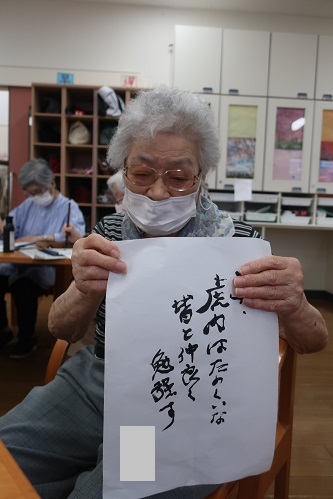 虎内はたのしいな
皆と仲良く
勉強す